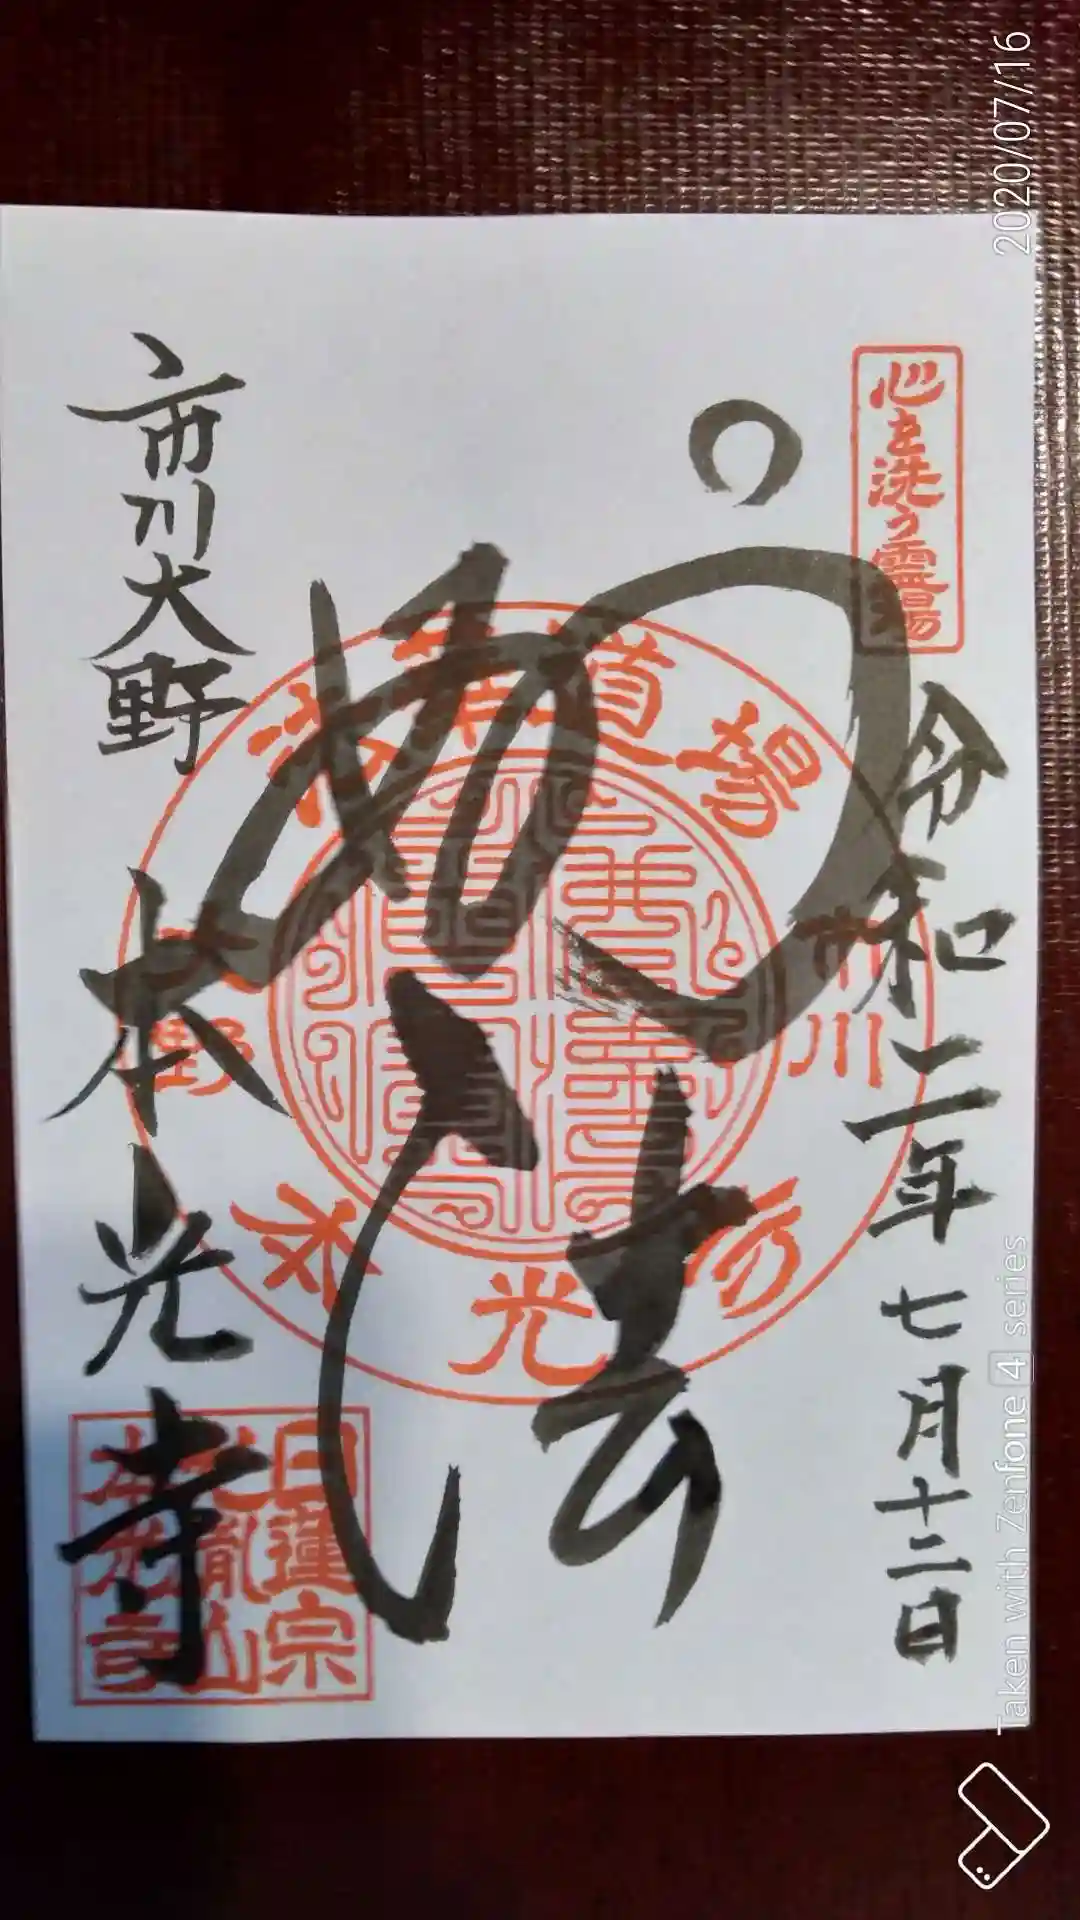 心を洗う霊場
令和二年七月十二日
妙法
市川大野
本光寺
道場
市川
大野
本光
日蓮宗
山
本光寺
2020/07/16
Taken with Zenfone 4 series